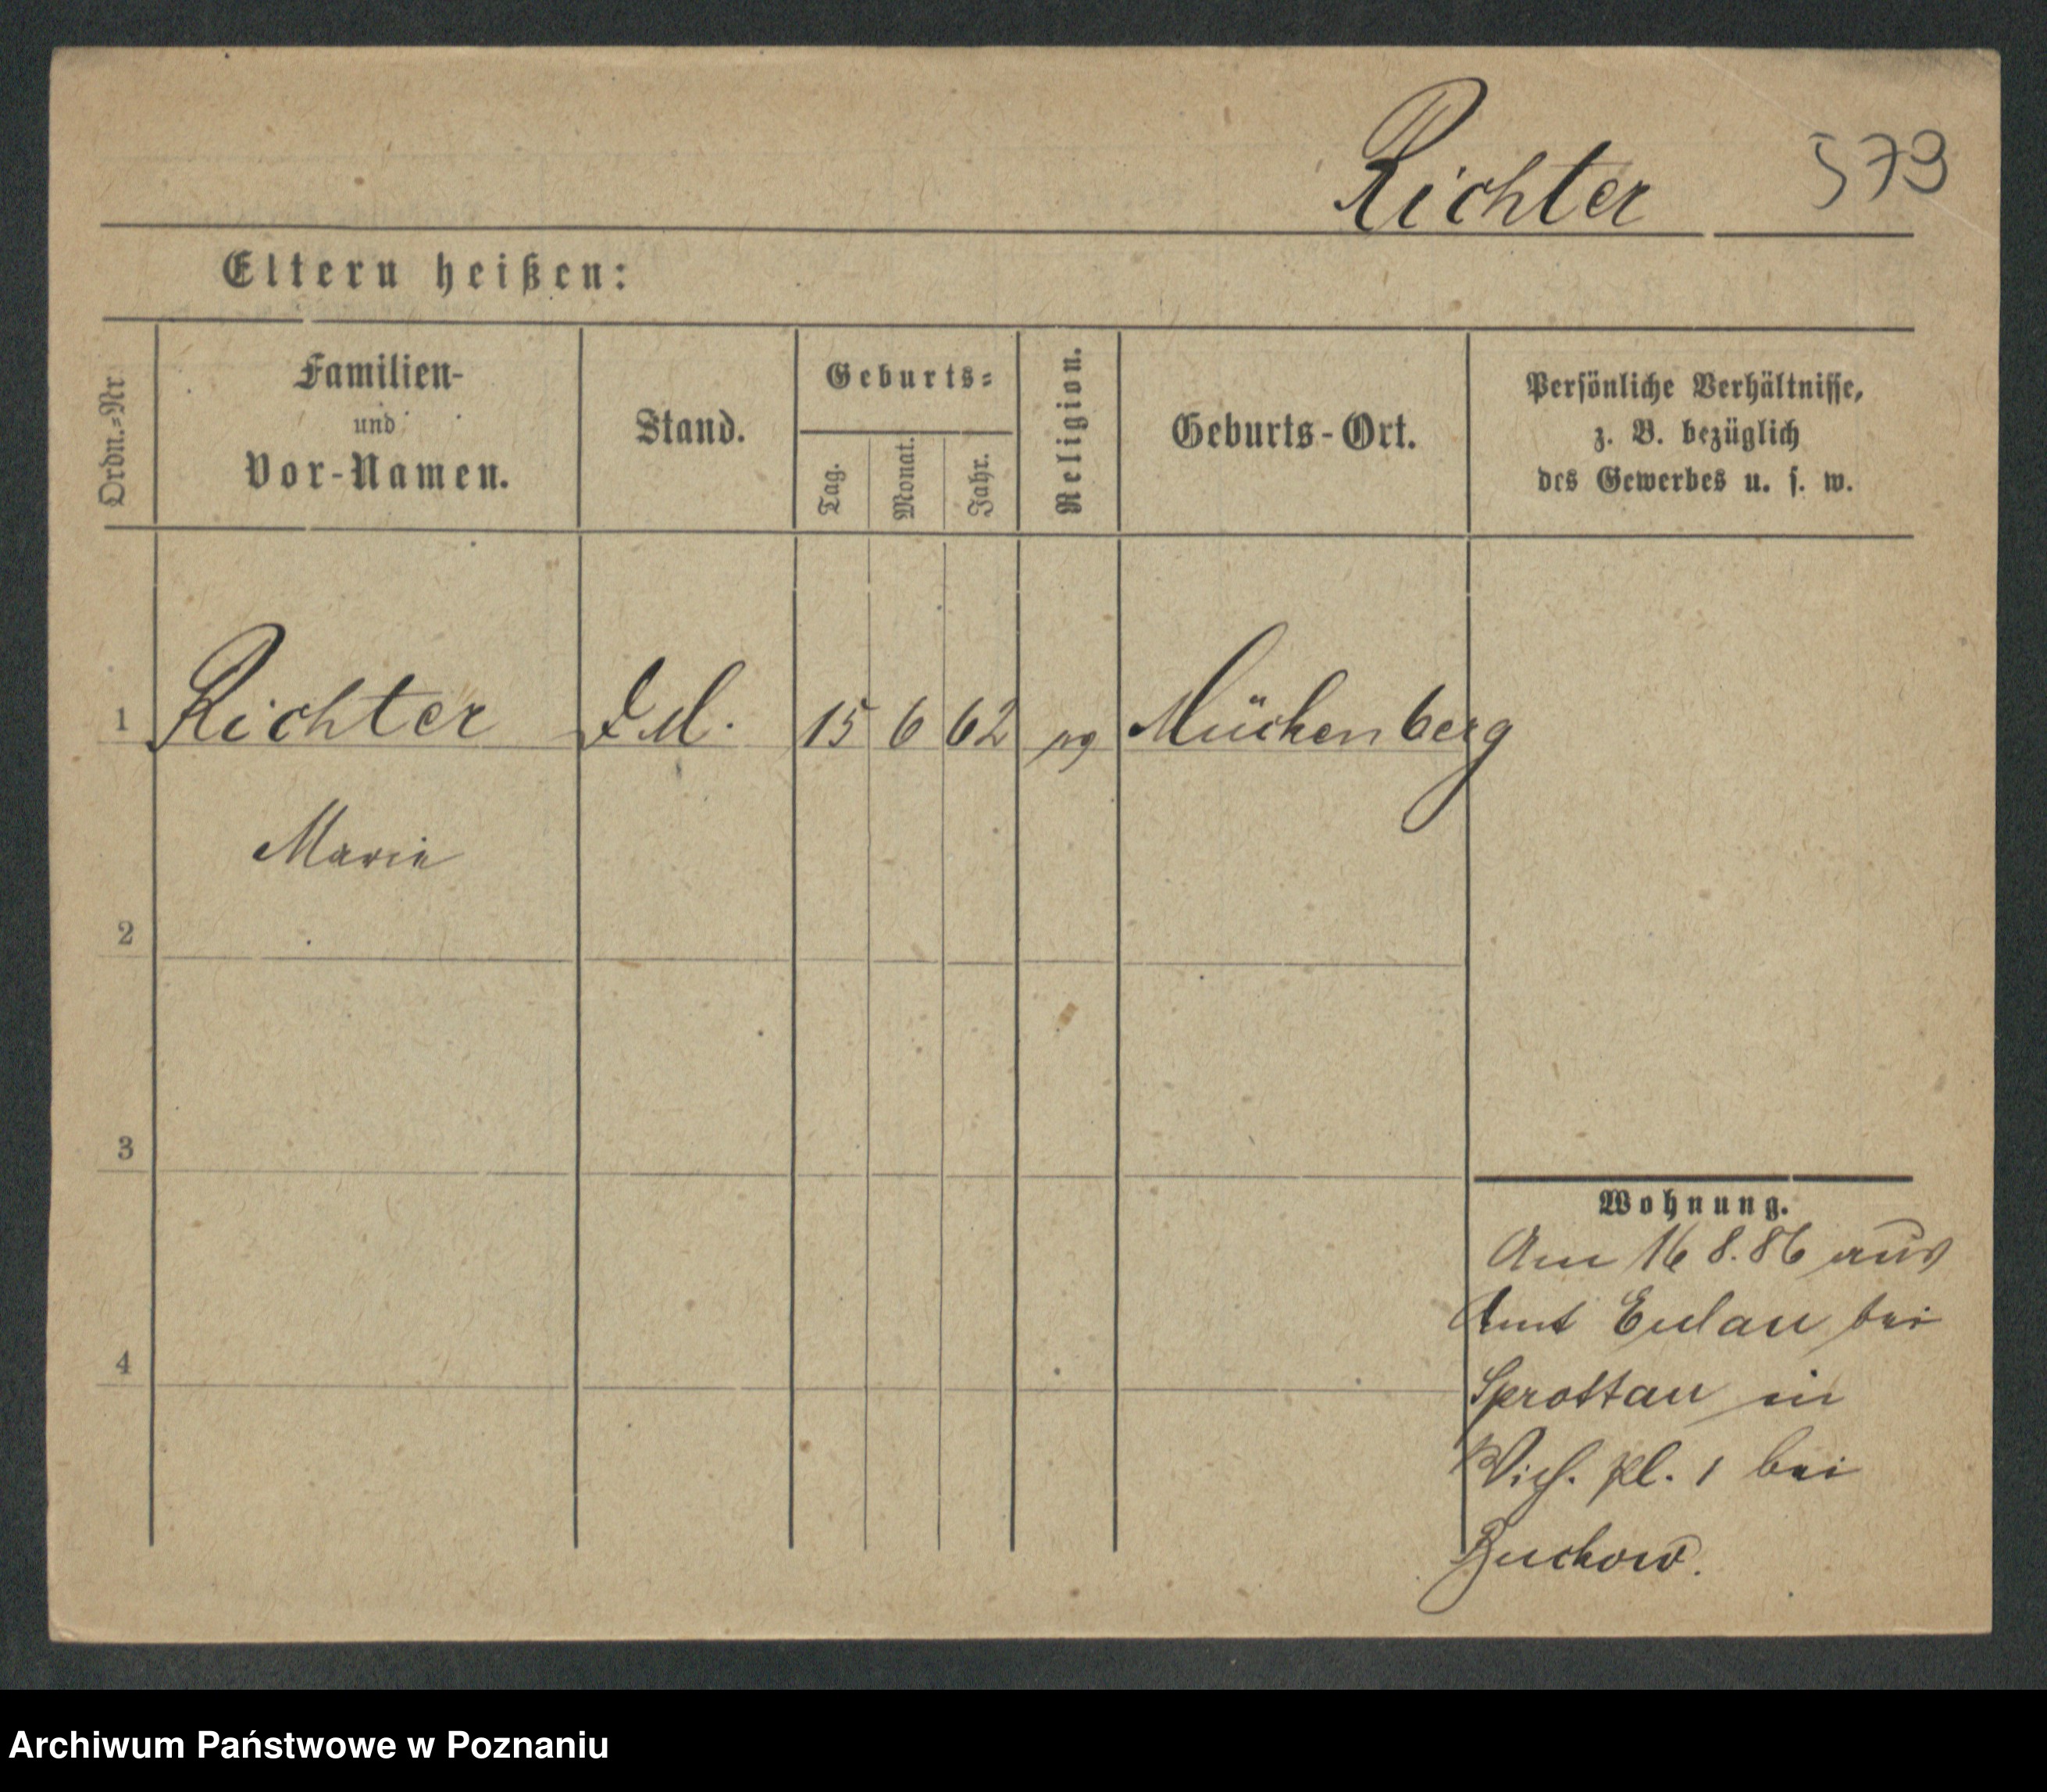 Richter 579
Eltern heißen:
Ordn.-Nr
Familien-
und
Vor-Namen.
Stand.
Geburts-
Tag.
Monat.
Jahr.
Religion.
Geburts-Ort.
Persönliche Verhältnisse,
z. B. bezüglich
des Gewerbes u. s. w.
1 Richter 15 6 62 Mückenberg
Marie
2
3
4
Wohnung.
Am 16 8. 86 aus
Amt Eulau bei
Sprottau in
pl. 1 bei
Buckow.
Archiwum Państwowe w Poznaniu